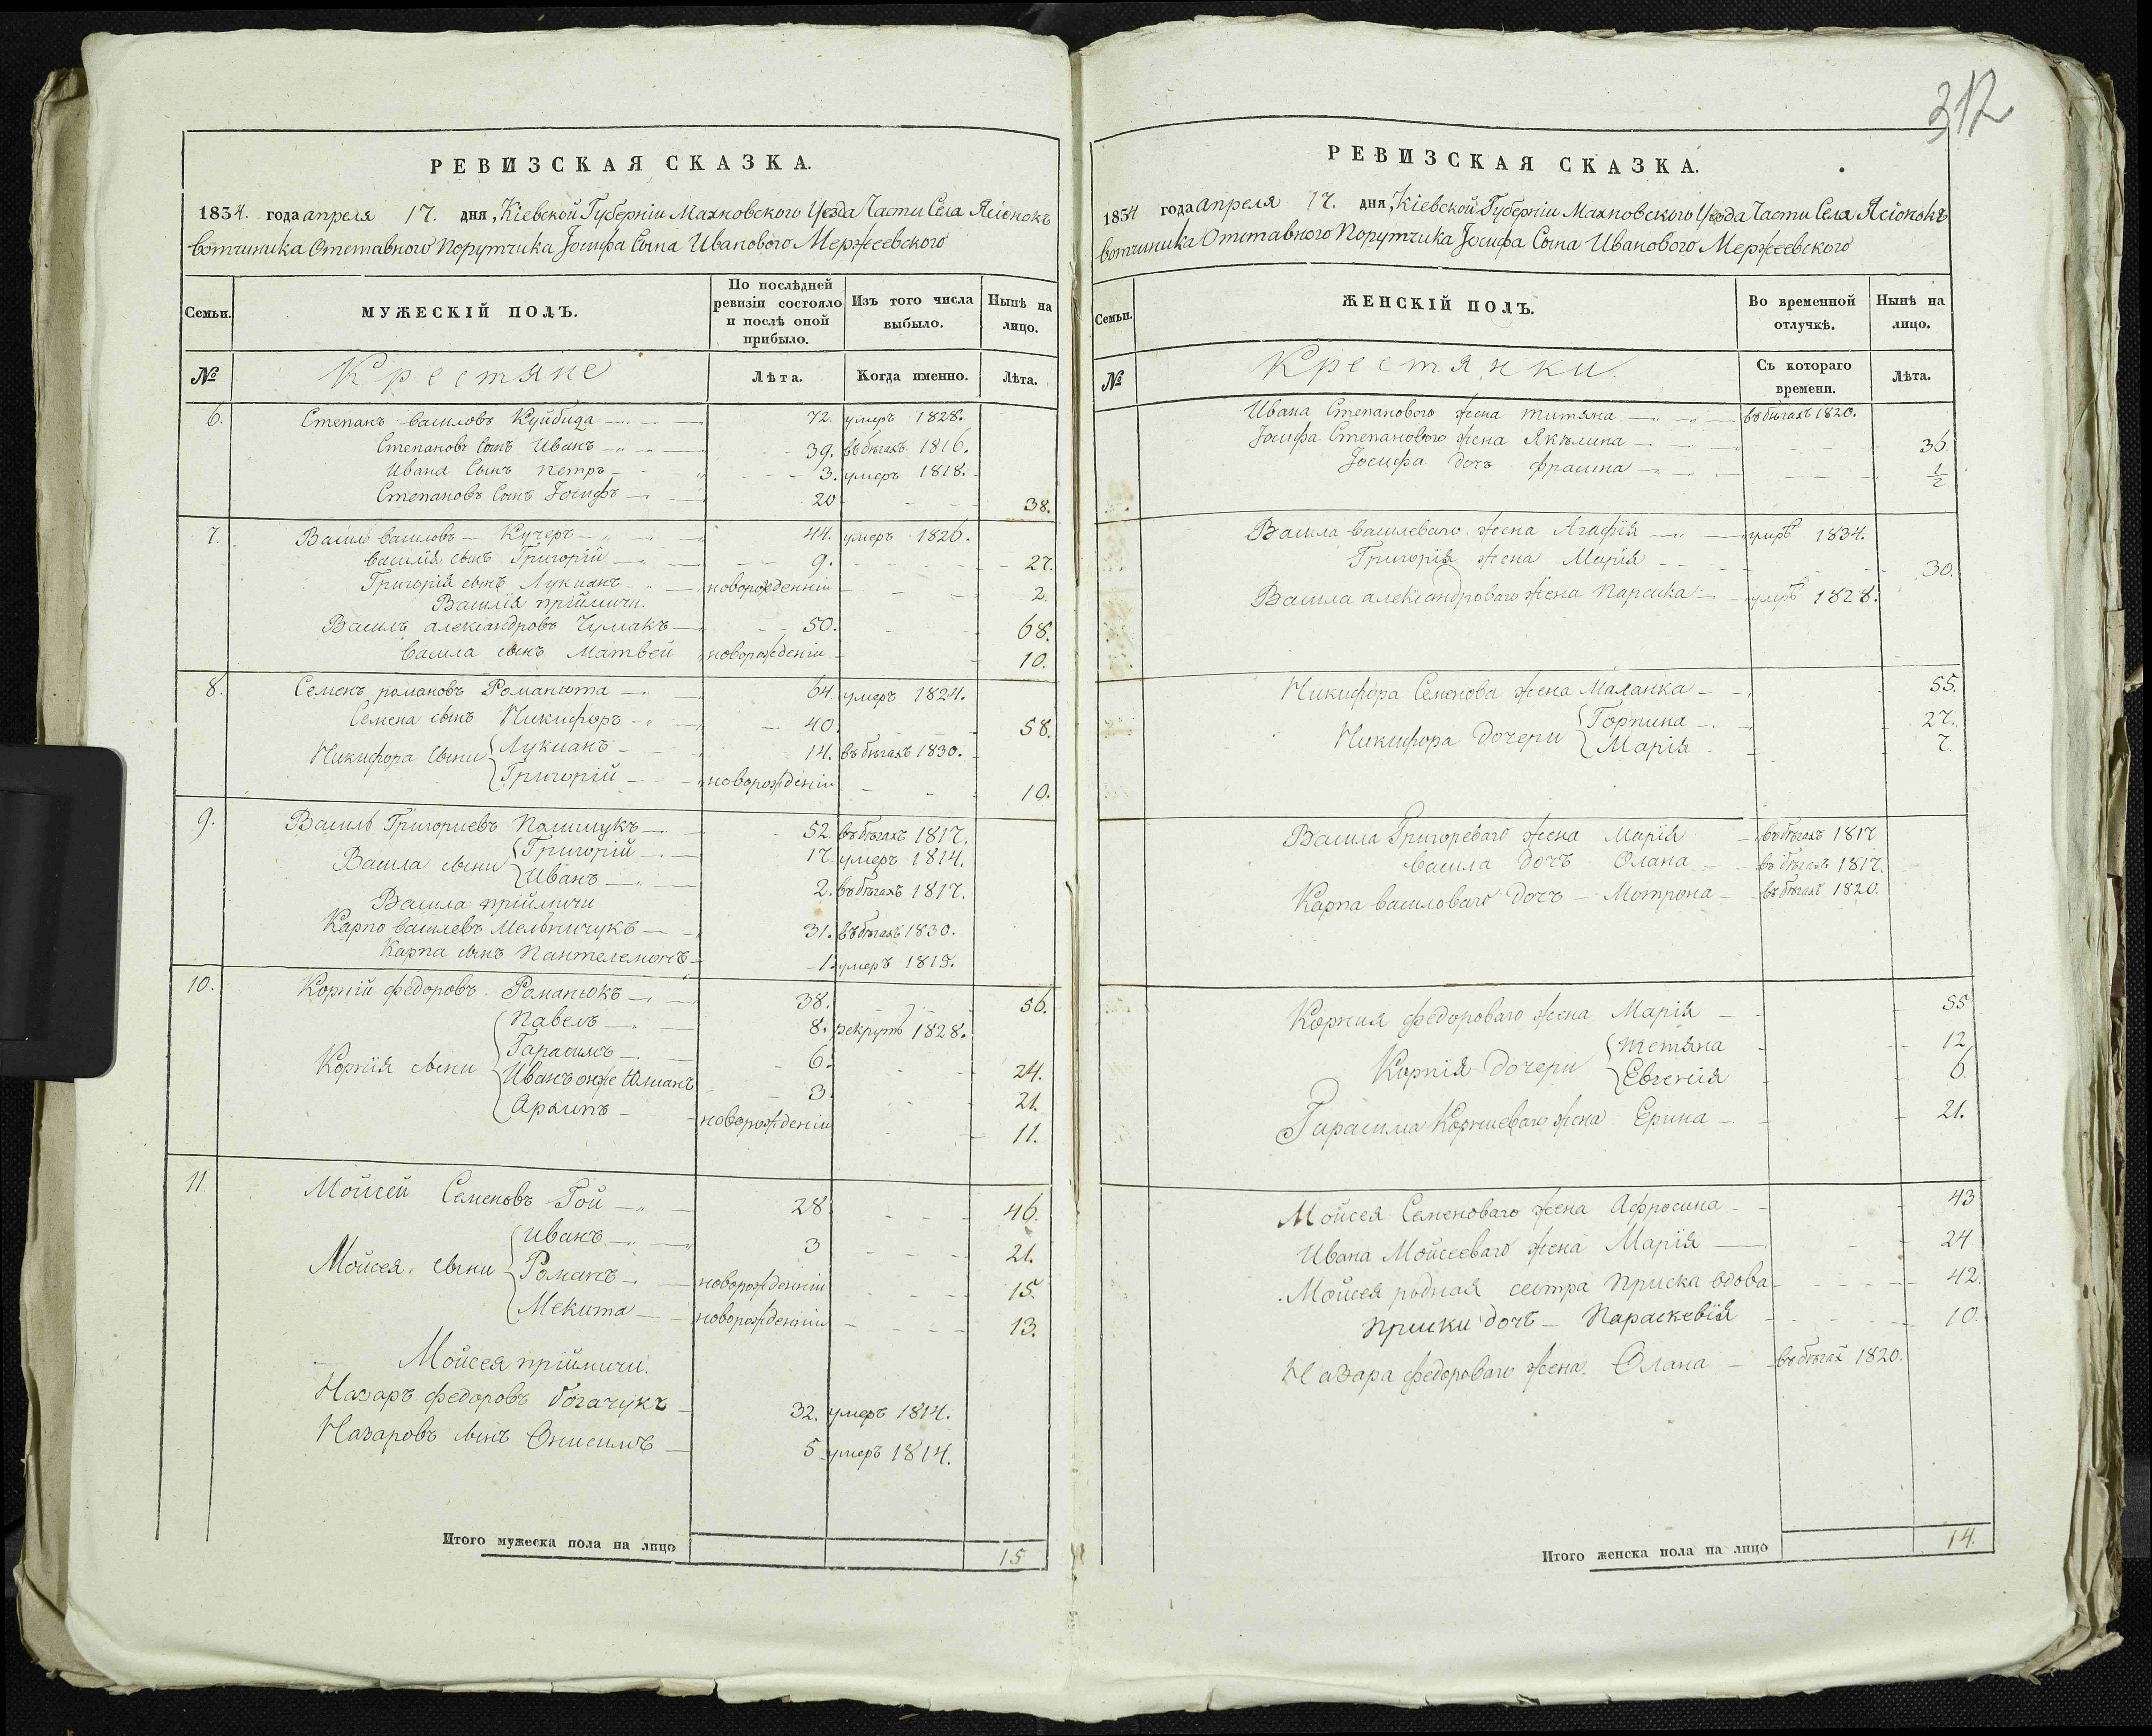 312
РЕВИЗСКАЯ СКАЗКА.
1834. года апреля 17. дня, Кіевской Губерніи Махновского Уезда Части Села Ясіонокъ
вотчинника Отставного Порутчика Іосифа Сына Иванового Мержеевского
Семьи. МУЖЕСКІЙ ПОЛЪ. По послѣдней ревизіи состояло и послѣ оной прибыло. Изъ того числа выбыло. Нынѣ на лицо.
№ Крестяне Лѣта. Когда именно. Лѣта.
6. Степанъ василовъ Куйбида 72. умеръ 1828.
Степановъ сынъ Иванъ 39. въ бѣгахъ 1816.
Ивана Сынъ петръ 3. умеръ 1818.
Степановъ Сынъ Іосифъ 20 38.
7. Василь василовъ Кучеръ 44. умеръ 1826.
василія сынъ Григорій 9. 27.
Григорія сынъ Лукианъ новорожденніи 2.
Василія пріймичи.
Василъ александровъ Чумакъ 50. 68.
василя сынъ Матвей новорожденіи 10.
8. Семенъ романовъ Романшта 64 умеръ 1824.
Семена сынъ Никифоръ 40 58.
Никифора сыни Лукианъ 14. въ бѣгахъ 1830.
Григорій новорожденіи 10.
9. Василь Григориевъ Полищукъ 52. въ бѣгахъ 1817.
Васила сыни Григорій 17 умеръ 1814.
Иванъ 2. въ бѣгахъ 1817.
Васила пріймичи
Карпо василевъ Мельничукъ 31. въ бѣгахъ 1830.
Карпа сынъ Пантелемонъ 1. умеръ 1815.
10. Корній федоровъ Романюкъ 38. 56.
Корнія сыни Павелъ 8. рекрутъ 1828.
Гарасимъ 6. 24.
Иванъ онже Юлианъ 3 21.
Архипъ новорожденіи 11.
11. Мойсей Семеновъ Гой 28 46.
Мойсея сыни Иванъ 3 21.
Романъ новорожденніи 15.
Мекита новорожденніи 13.
Мойсея пріймичи.
Назаръ федоровъ Богачукъ 32. умеръ 1814.
Назаровъ сынъ Онисимъ 5 умеръ 1814.
Итого мужеска пола на лицо 15
РЕВИЗСКАЯ СКАЗКА.
1834 года апреля 17. дня, Кіевской Губерніи Махновского Уезда Части Села Ясіонокъ
вотчинника Отставного Порутчика Іосифа Сына Иванового Мержеевского
Семьи. ЖЕНСКІЙ ПОЛЪ. Во временной отлучкѣ. Нынѣ на лицо.
№ Крестянки. Съ котораго времени. Лѣта.
Ивана Степанового жена титяна въ бѣгахъ 1820.
Іосифа Степанового жена Якилина 36.
Іосифа дочъ фрасина 1/2
Васила василеваго жена Агафія умръ 1834.
Григорія жена Марія 30.
Васила александроваго жена Параска умръ 1828.
Никифора Семенова жена Маланка 55.
Никифора дочери Горпина 27.
Марія 7.
Васила Григореваго жена Марія въ бѣгахъ 1817
васила дочъ Олана въ бѣгахъ 1817.
Карпа василоваго дочъ Мотрона въ бѣгахъ 1820.
Корния федороваго жена Марія 55
Корнія дочери тетяна 12
Евгенія 6.
Гарасима Корниеваго жена Ерина 21.
Мойсея Семеноваго жена Афросина 43
Ивана Мойсееваго жена Марія 24
Мойсея родная сестра Приска вдова 42.
Приски дочъ Параскевія 10.
Назара федороваго жена Олана въ бѣгах 1820.
Итого женска пола на лицо 14.